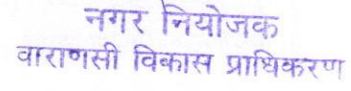 नगर नियोजक
वाराणसी विकास प्राधिकरण